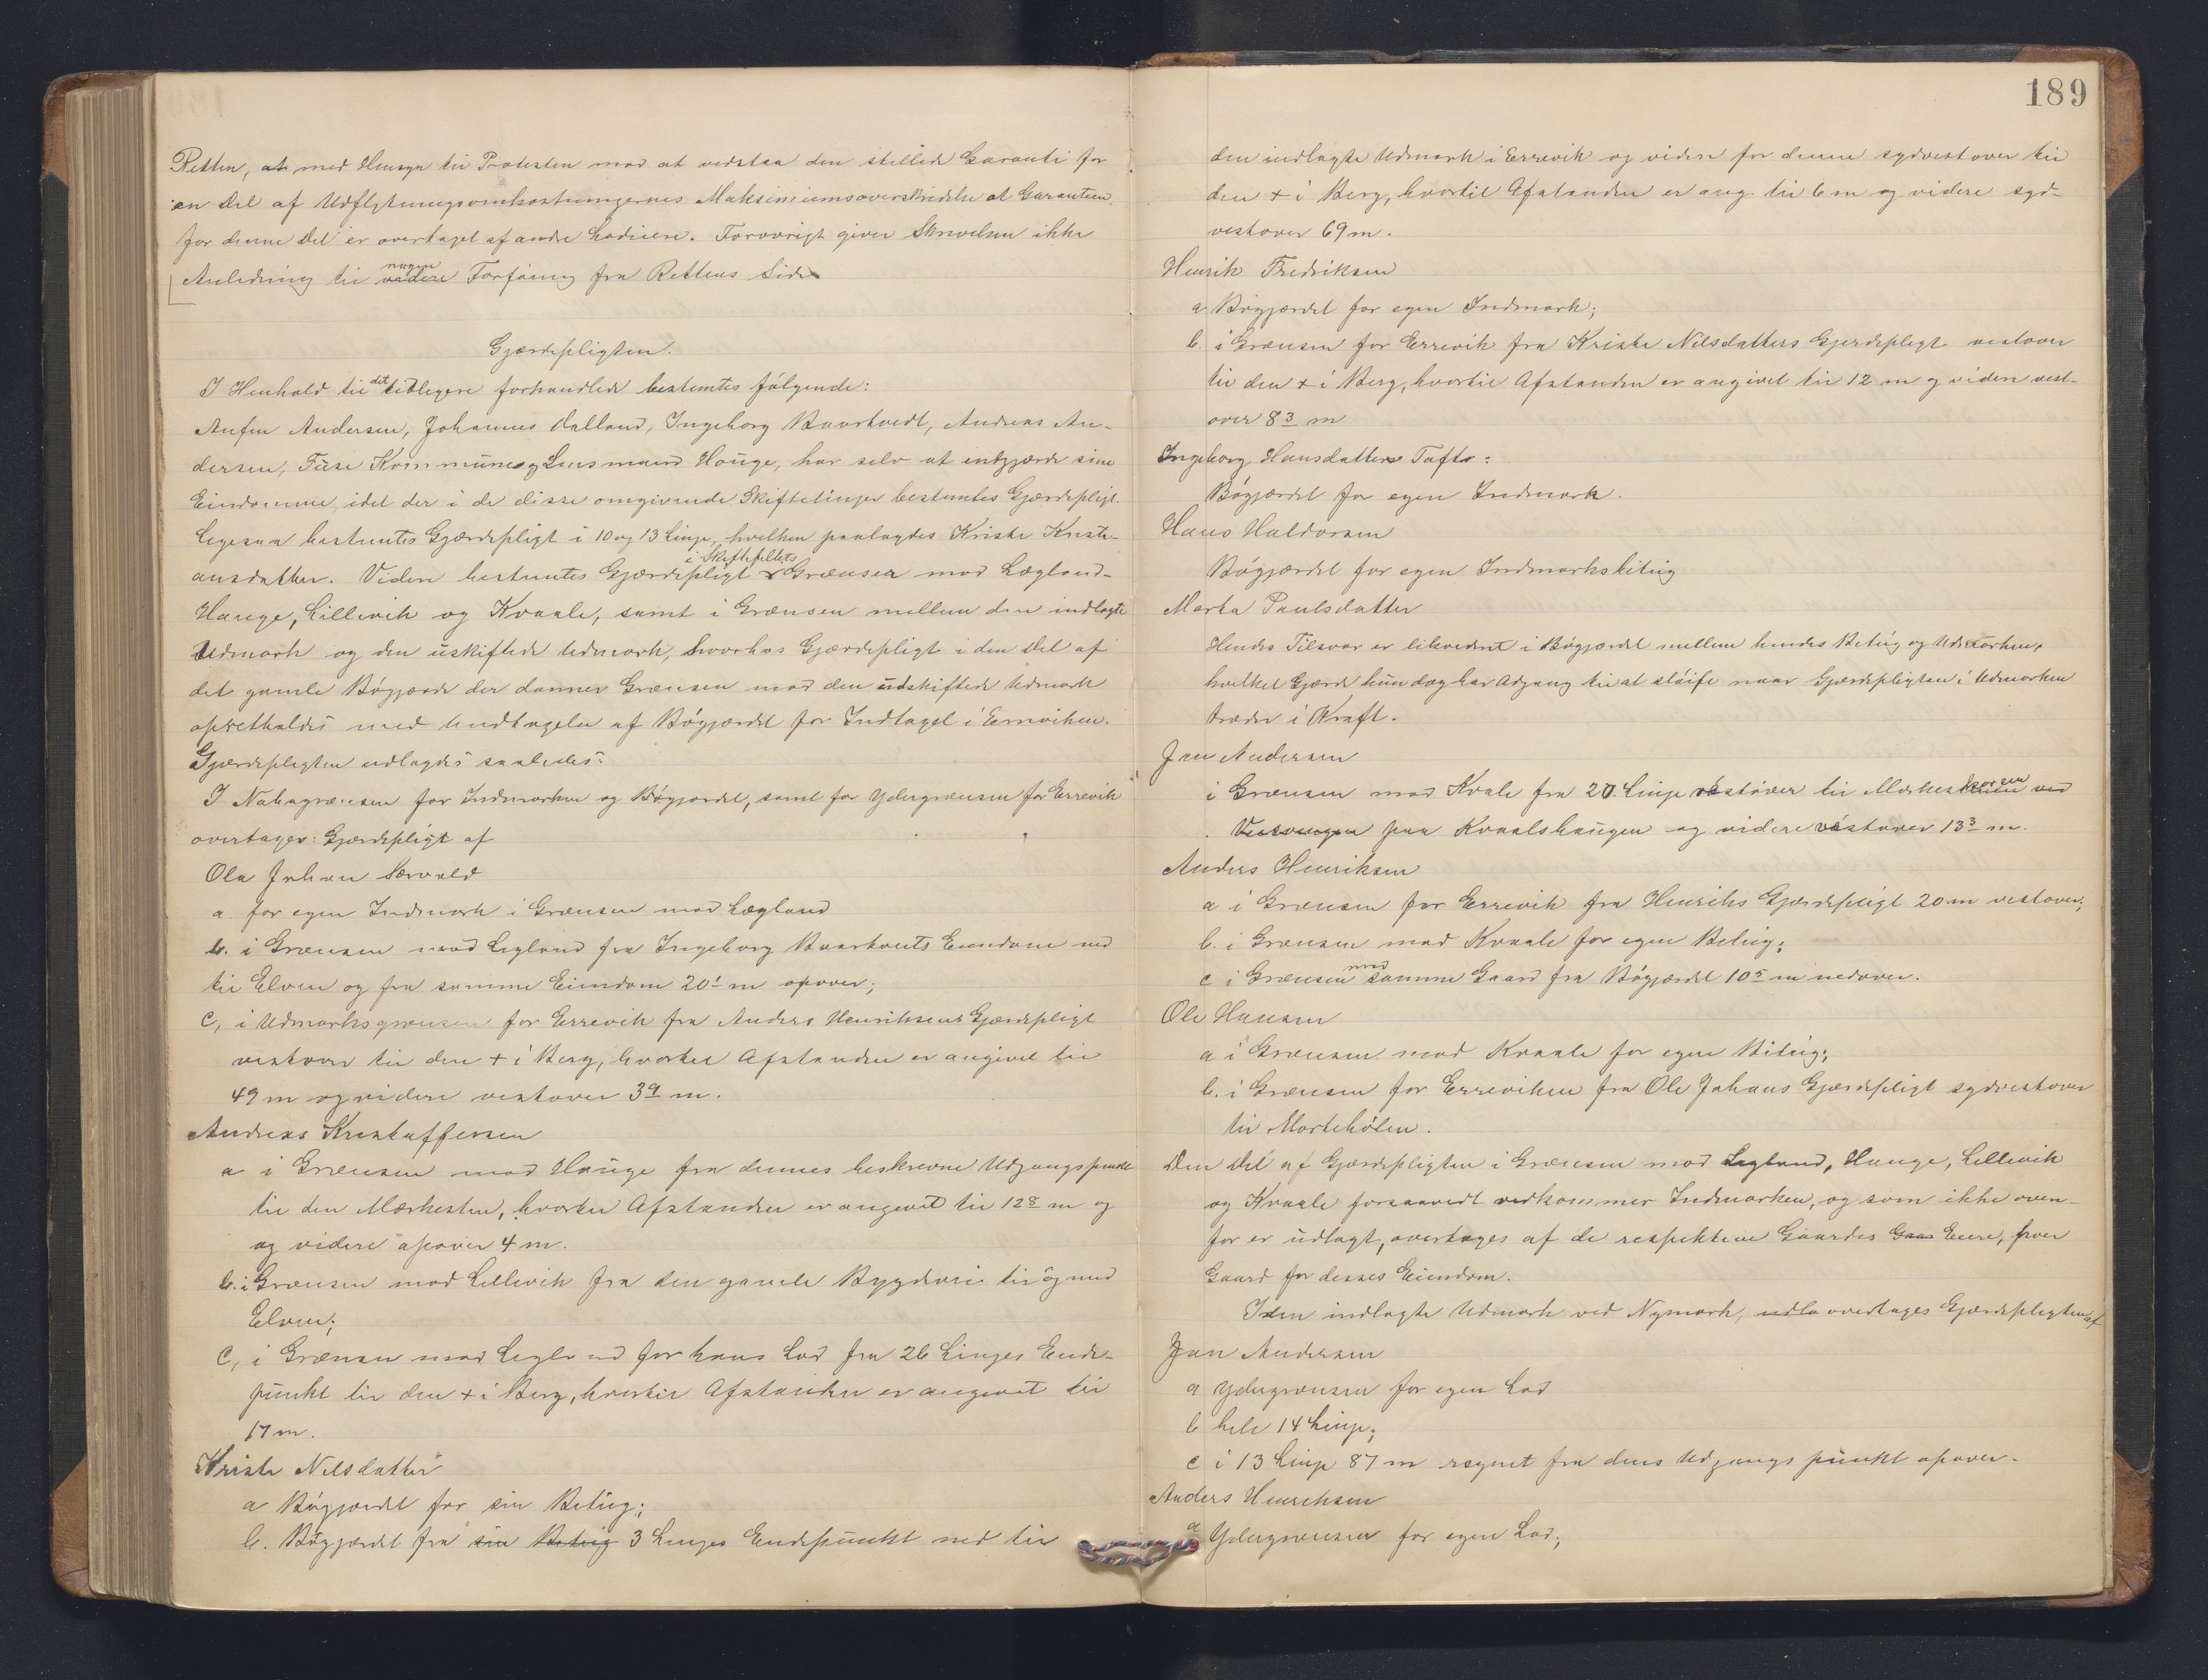 189
Retten, at med Hensyn til Protesten mod at vedstaa den stillede Garanti for
en Del af Udflytningsomkostningernes Maksimumsoverskridelse at Garantien
for denne Del er overtaget af andre Lodeiere. Forøvrigt giver Skrivelsen ikke
Anledning til nogen videre Forføining fra Rettens Side
Gjærdepligten.
I Henhold til det tidligere forhandlede bestemtes følgende:
Anfin Andersen, Johannes Dalland, Ingeborg Baartvedt, Andreas An-
dersen, Fuse Kommune og Lensmand Hauge, har selv at indgjærde sine
Eiendomme, idet der i de disse omgivende Skiftelinjer bestemtes Gjærdepligt.
Ligesaa bestemtes Gjærdepligt i 10 og 13 Linje, hvilken paalagdes Kriste Kristi-
ansdatter. Videre bestemtes Gjærdepligt i Skiftefeltets Grænser mod Lægland-
Hauge, Lillevik og Kvaale, samt i Grænsen mellem den indlagte
Udmark og den uskiftede Udmark, hvorhos Gjærdepligt i den Del af
det gamle Bøgjærde der danner Grænsen mod den udskiftede Udmark
opretholdes med Undtagelse af Bøgjærdet for Indtaget i Errviken.
Gjærdepligten udlagdes saaledes:
I Nabogrænsen for Indmarken og Bøgjærdet, samt for Ydergrænsen for Errevik
overtages: Gjærdepligt af
Ola Johan Særvold
a for egen Indmark i Grænsen mod Lægland
b. i Grænsen mod Legland fra Ingeborg Baartveits Eiendom ned
til Elven og fra samme Eiendom 20¹ m opover;
c, i Udmarksgrænsen for Errevik fra Anders Henriksens Gjærdepligt
vestover til den + i Berg, hvortil Afstanden er angivet til
49 m og videre vestover 3⁹ m.
Andreas Kristoffersen
a i Grænsen mod Hauge fra dennes beskrevne Udgangspunkt
til den Merkesten, hvortil Afstanden er angivet til 12⁸ m og
og videre opover 4 m.
b. i Grænsen mod Lillevik fra den gamle Bygdevei til og med
Elven;
c, i Grænsen mod Legland for hans Lod fra 26 Linjes Ende-
punkt til den + i Berg, hvortil Afstanden er angivet til
17 m.
Kriste Nilsdatter
a Bøgjærdet for sin Beteig;
b. Bøgjærdet fra sin Beteig 3 Linjes Endepunkt ned til
den indlagte Udmark i Errevik og videre for denne sydvestover til
den + i Berg, hvortil Afstanden er ang. til 6 m og videre syd-
vestover 69 m.
Henrik Fredriksen
a Bøgjærdet for egen Indmark;
b. i Grænsen for Errevik fra Kriste Nilsdatters Gjerdepligt vestover
til den + i Berg, hvortil Afstanden er angivet til 12 m og videre vest-
over 8³ m
Ingeborg Hansdatter Tofte:
Bøgjærdet for egen Indmark.
Hans Haldorsen
Bøgjærdet for egen Indmarksteig
Marta Paulsdatter
Hendes Tilsvar er likvederet i Bøgjærdet mellem hendes Beteig og Udmarken,
hvilket Gjærde hun dog har Adgang til at sløife naar Gjærdepligten i Udmarken
træder i Kraft.
Jon Andersen
i Grænsen mod Kvale fra 20 Linje vestover til Merkestenen ved
Vestvangen paa Kvaalshaugen og videre vestover 13³ m.
Anders Henriksen
a i Grænsen for Errevik fra Henriks Gjærdepligt 20 m vestover;
b. i Grænsen mod Kvaale for egen Beteig;
c i Grænsen mod samme Gaard fra Bøgjærdet 10⁵ m nedover.
Ole Hansen
a i Grænsen mod Kvaale for egen Beteig;
b. i Grænsen for Erreviken fra Ole Johans Gjærdepligt sydvestover
til Mortehølen.
Den Del af Gjærdepligten i Grænsen mod Legland, Hauge, Lillevik
og Kvaale forsaavidt vedkommer Indmarken, og som ikke oven-
for er udlagt, overtages af de respektive Gaardes Gaar Eiere, hver
Gaard for dessses Eiendom.
I den indlagte Udmark ved Nymark, udla overtages Gjærdepligten af
Jon Andersen
a Ydergrænsen for egen Lod
b hele 14 Linje;
c i 13 Linje 87 m regnet fra dens Udgangspunkt opover.
Anders Henriksen
a Ydergrænsen for egen Lod;